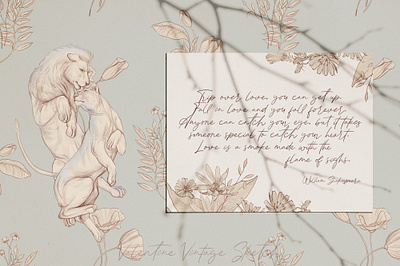 Trip over love, you can get up.
Fall in love and you fall forever.
Anyone can catch your eye, but it takes
someone special to catch your heart.
Love is a smoke made with the
flame of sighs.
William Shakespeare
Valentine Vintage Sketches